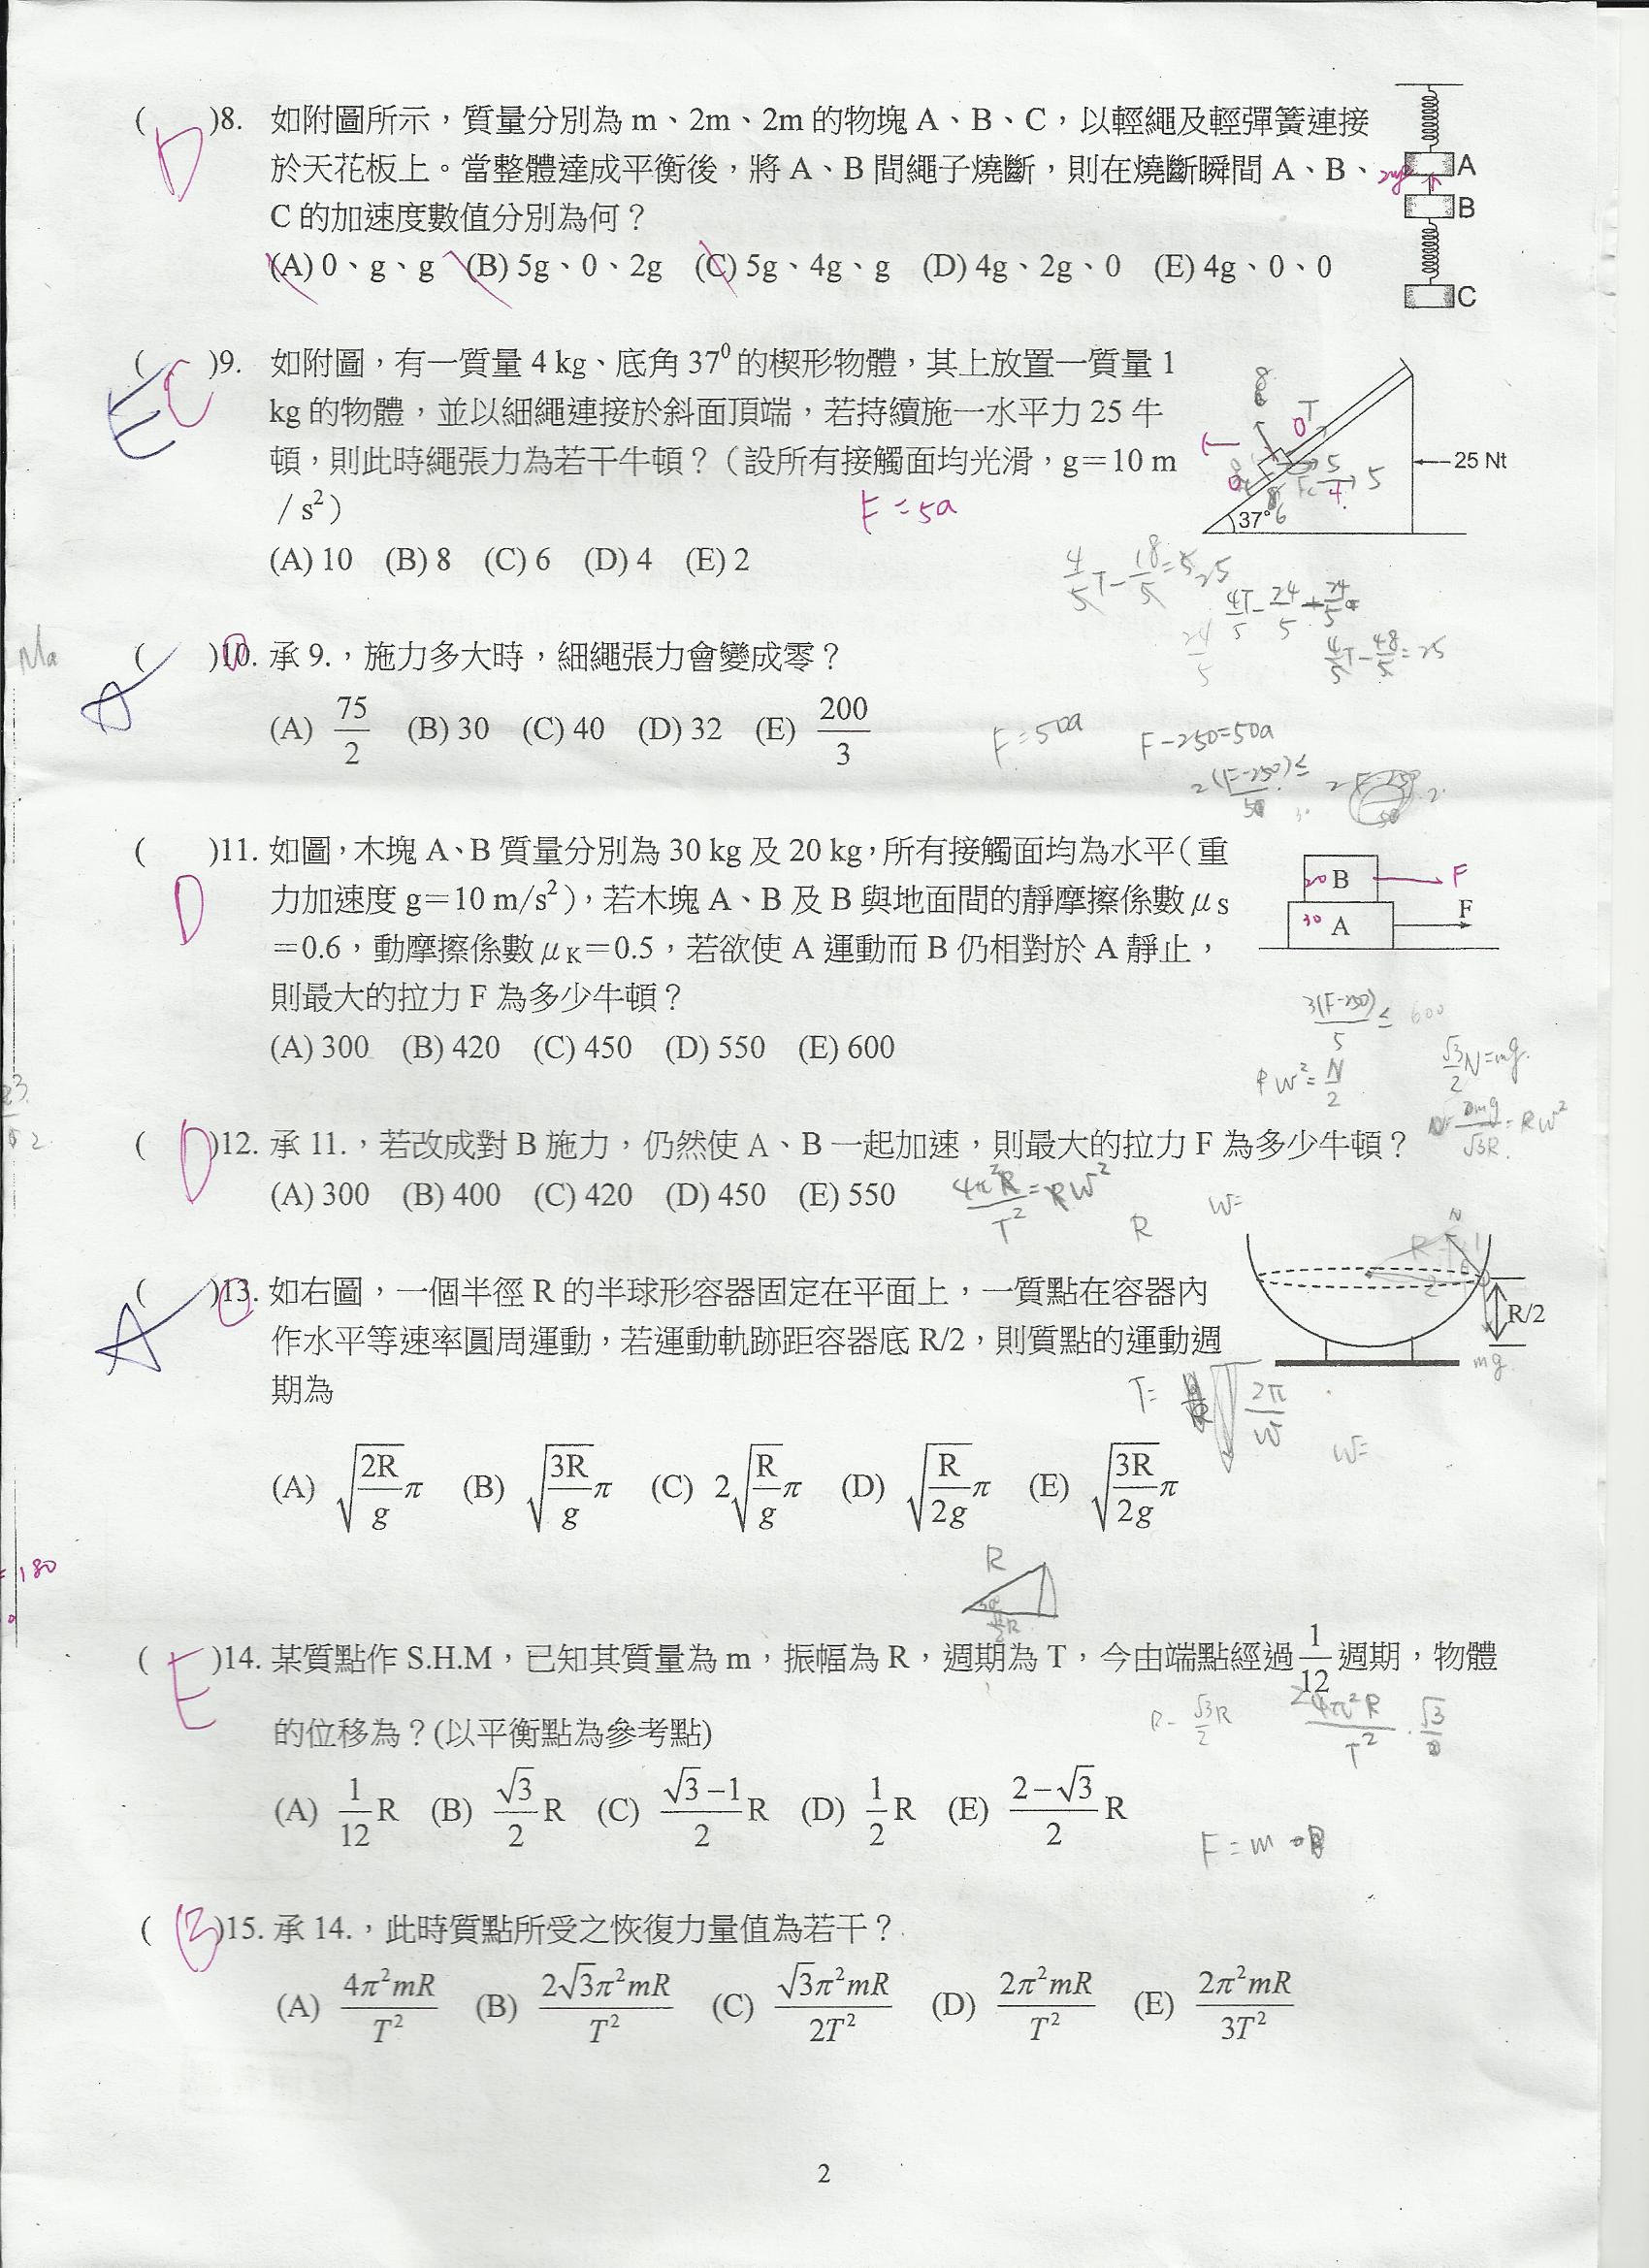 ( D )8. 如附圖所示，質量分別為 m、2m、2m 的物塊 A、B、C，以輕繩及輕彈簧連接
於天花板上。當整體達成平衡後，將 A、B 間繩子燒斷，則在燒斷瞬間 A、B、
C 的加速度數值分別為何？
(A) 0、g、g (B) 5g、0、2g (C) 5g、4g、g (D) 4g、2g、0 (E) 4g、0、0
A
B
C
( E C )9. 如附圖，有一質量 4 kg、底角 37⁰ 的楔形物體，其上放置一質量 1
kg 的物體，並以細繩連接於斜面頂端，若持續施一水平力 25 牛
頓，則此時繩張力為若干牛頓？（設所有接觸面均光滑，g＝10 m
/ s²）
F = 5a
(A) 10 (B) 8 (C) 6 (D) 4 (E) 2
T
5
5
25 Nt
37°
Ma
( A )10. 承 9.，施力多大時，細繩張力會變成零？
(A) 75/2 (B) 30 (C) 40 (D) 32 (E) 200/3
F = 50a
F - 250 = 50a
( D )11. 如圖，木塊 A、B 質量分別為 30 kg 及 20 kg，所有接觸面均為水平（重
力加速度 g＝10 m/s²），若木塊 A、B 及 B 與地面間的靜摩擦係數 μs
＝0.6，動摩擦係數 μK＝0.5，若欲使 A 運動而 B 仍相對於 A 靜止，
則最大的拉力 F 為多少牛頓？
(A) 300 (B) 420 (C) 450 (D) 550 (E) 600
20 B F
30 A F
3(F-250)/5 ≤ 600
√3/2 N = mg
( D )12. 承 11.，若改成對 B 施力，仍然使 A、B 一起加速，則最大的拉力 F 為多少牛頓？
(A) 300 (B) 400 (C) 420 (D) 450 (E) 550
R
W=
( A )13. 如右圖，一個半徑 R 的半球形容器固定在平面上，一質點在容器內
作水平等速率圓周運動，若運動軌跡距容器底 R/2，則質點的運動週
期為
R/2
mg
T=
2π/W
W=
(A) √(2R/g) π (B) √(3R/g) π (C) 2√(R/g) π (D) √(R/2g) π (E) √(3R/2g) π
= 180
R
( E )14. 某質點作 S.H.M，已知其質量為 m，振幅為 R，週期為 T，今由端點經過 1/12 週期，物體
的位移為？(以平衡點為參考點)
R - √3/2 R
(A) 1/12 R (B) √3/2 R (C) (√3－1)/2 R (D) 1/2 R (E) (2－√3)/2 R
F = m
( B )15. 承 14.，此時質點所受之恢復力量值為若干？
(A) 4π²mR/T² (B) 2√3π²mR/T² (C) √3π²mR/2T² (D) 2π²mR/T² (E) 2π²mR/3T²
2